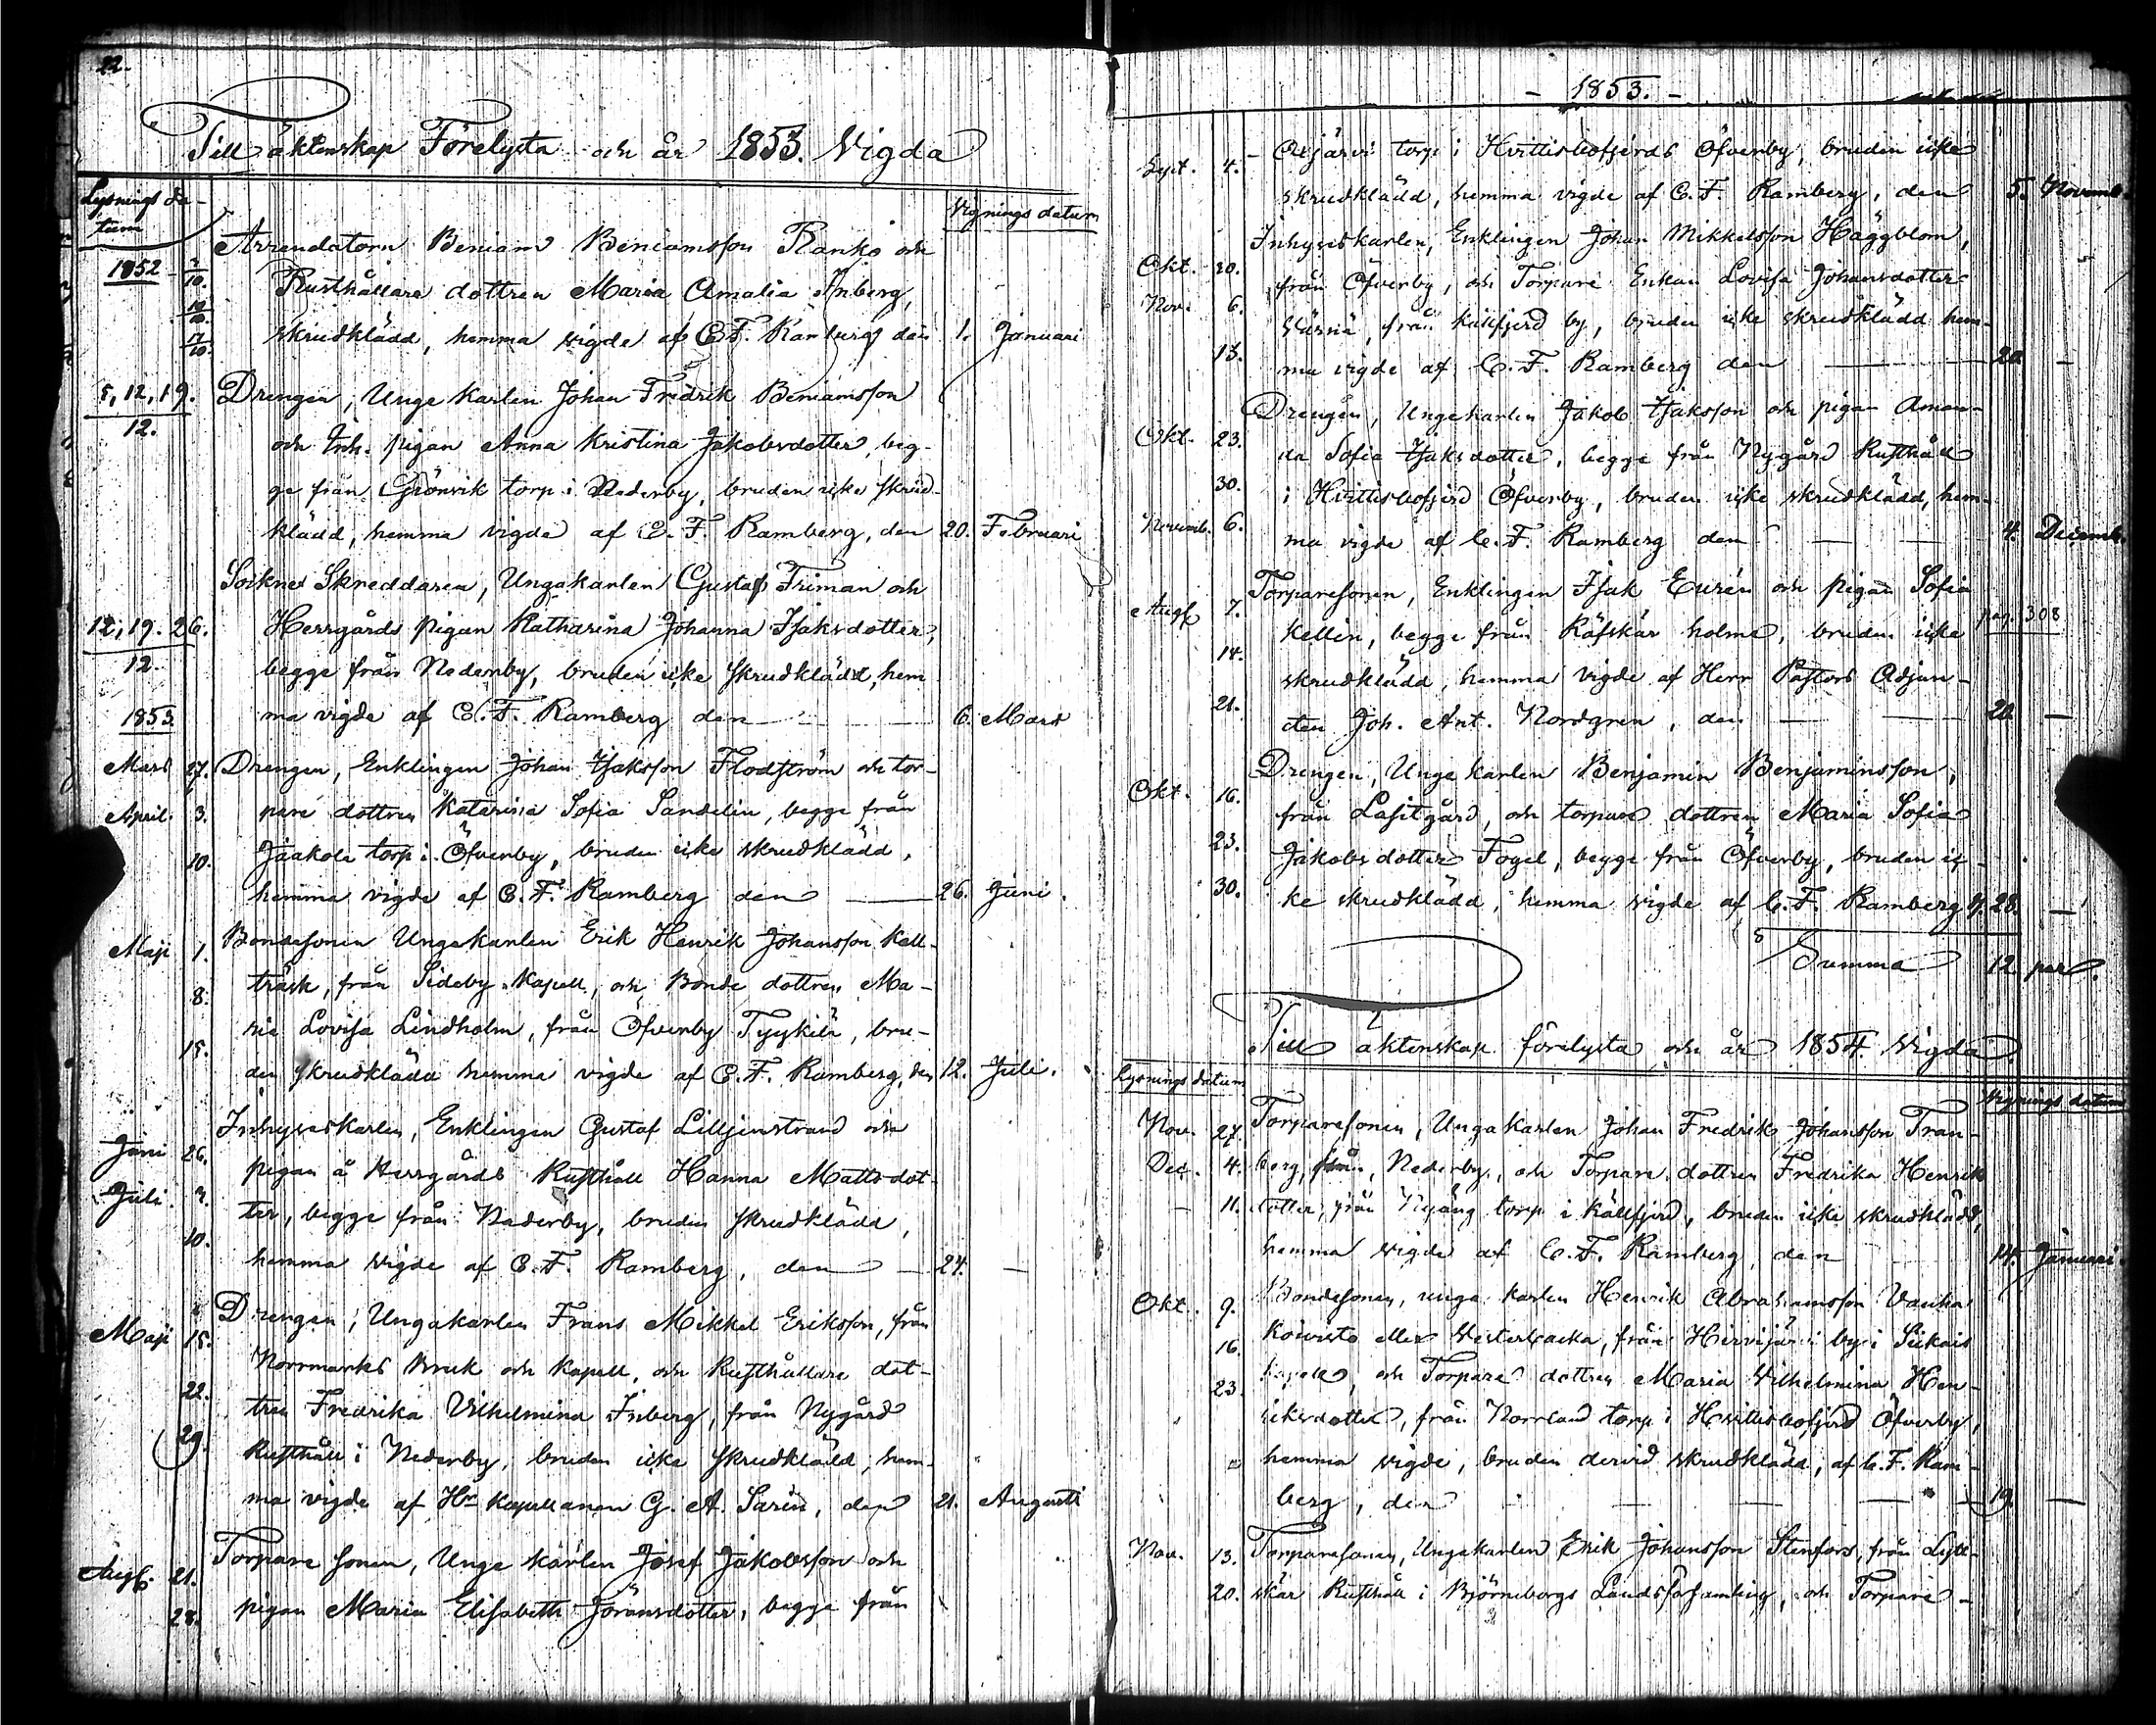 22.
Till äktenskap Förelysta och år 1853. Vigda
Lysnings da-
tum
Vignings datum
Arrendatorn Beniam Beniamsson Ranko och
1852 10.
Rusthållare dottren Maria Amalia Inberg,
10.
skrudklädd, hemma vigde af C. F. Ramberg den 1. Januari
5, 12, 19. Drengen, Unge karlen Johan Fredrik Beniamsson
12.
och Inh. pigan Anna Kristina Jakobsdotter, beg-
ge från Grönvik torp i Nederby, bruden icke skrud-
klädd, hemma vigde af C. F. Ramberg, den 20. Februari
Sockne Skreddaren, Ungakarlen Gustaf Friman och
12, 19. 26. Herrgårds pigan Katharina Johanna Isaksdotter,
12. begge från Nederby, bruden icke skrudklädd, hem
1853 ma vigde af C. F. Ramberg den 6. Mars
Mars 27. Drengen, Enklingen Johan Isaksson Flodström och tor-
April. 3. pare dottren Katarina Sofia Sandelin, begge från
10. Jaakola torp i Öfverby, bruden icke skrudklädd,
hemma vigde af C. F. Ramberg den 26. Juni.
Maji 1. Bondesonen Ungakarlen Erik Henrik Johansson Kall-
8. träsk, från Sideby Kapell, och Bonde dottren Ma-
ria Lovisa Lindholm, från Öfverby Tyykilä, bru-
15. den skrudklädd hemma vigde af C. F. Ramberg, den 12. Juli.
Inhyseskarlen, Enklingen Gustaf Lilljenstrand och
Juni 26. pigan å Herrgårds Rusthåll Hanna Mattsdot-
Juli 3. ter, begge från Nederby, bruden skrudklädd,
10. hemma vigde af C. F. Ramberg, den 24. —
Drengen, Ungakarlen Frans Mikkel Eriksson, från
Maji 15. Norrmarks Bruk och Kapell, och Rusthållare dot-
22. tren Fredrika Vilhelmina Inberg, från Nygård
29. Rusthåll i Nederby, bruden icke skrudklädd, hem-
ma vigde af Hr Kapellanen G. A. Sarin, den 21. Augusti
Aug. 21. Torpare sonen, Unge karlen Josef Jakobsson och
28. pigan Maria Elisabeth Göransdotter, begge från
- 1853. -
Sept. 4. - Oxjärvi torp i Hvittisbofjerds Öfverby, bruden icke
skrudklädd, hemma vigde af C. F. Ramberg, den 5. Novemb.
Inhyseskarlen, Enklingen Johan Mikkelsson Häggblom,
Okt. 30. från Öfverby, och Torpare Enkan Lovisa Johansdotter
Nov. 6. från Källfjerd by, bruden icke skrudklädd hem-
13. ma vigde af C. F. Ramberg den 20. —
Drengen, Ungekarlen Jakob Isaksson och pigan Aman-
Okt. 23. da Sofia Isaksdotter, begge från Nygård Rusthåll
30. i Hvittisbofjerd Öfverby, bruden icke skrudklädd, hem-
Novemb. 6. ma vigde af C. F. Ramberg den 4. Decemb.
Torparesonen, Enklingen Isak Eurén och pigan Sofia
Aug. 7. Kellin, begge från Räfskär holme, bruden icke pag. 308
14. skrudklädd, hemma vigde af Herr Pastors Adjun-
21. cten Joh. Ant. Nordgren, den 26. —
Drengen, Unge karlen Benjamin Benjaminsson,
Okt. 16. från Lasitgård, och torpare dottren Maria Sofia
23. Jakobsdotter Fogel, begge från Öfverby, bruden ic-
30. ke skrudklädd, hemma vigde af C. F. Ramberg d. 28. —
Summa 12 par.
Till äktenskap förelysta och år 1854. Vigda
Lysnings datum
Vignings datum
Nov. 27. Torparesonen, Ungakarlen Johan Fredrik Johansson Tran-
Dec. 4. berg, från Nederby, och Torpare dottren Fredrika Henriks
— 11. dotter, från Nyäng torp i Källfjerd, bruden icke skrudklädd,
hemma vigde af C. F. Ramberg, den 14. Januari.
Okt. 9. Bondesonen, unga karlen Henrik Abrahamsson Vanha
16. Koivisto eller Vesterbacka, från Hirvijärvi by i Siikais
23. Kapell, och Torpare dottren Maria Vilhelmina Hen-
riksdotter, från Norrland torp i Hvittisbofjerd Öfverby,
hemma vigde, bruden dervid skrudklädd, af C. F. Ram-
berg, den 19. —
Nov. 13. Torparesonen, Ungakarlen Erik Johansson Stenfors, från Lytt-
20. skär Rusthåll i Björneborgs Landsförsamling, och Torpare